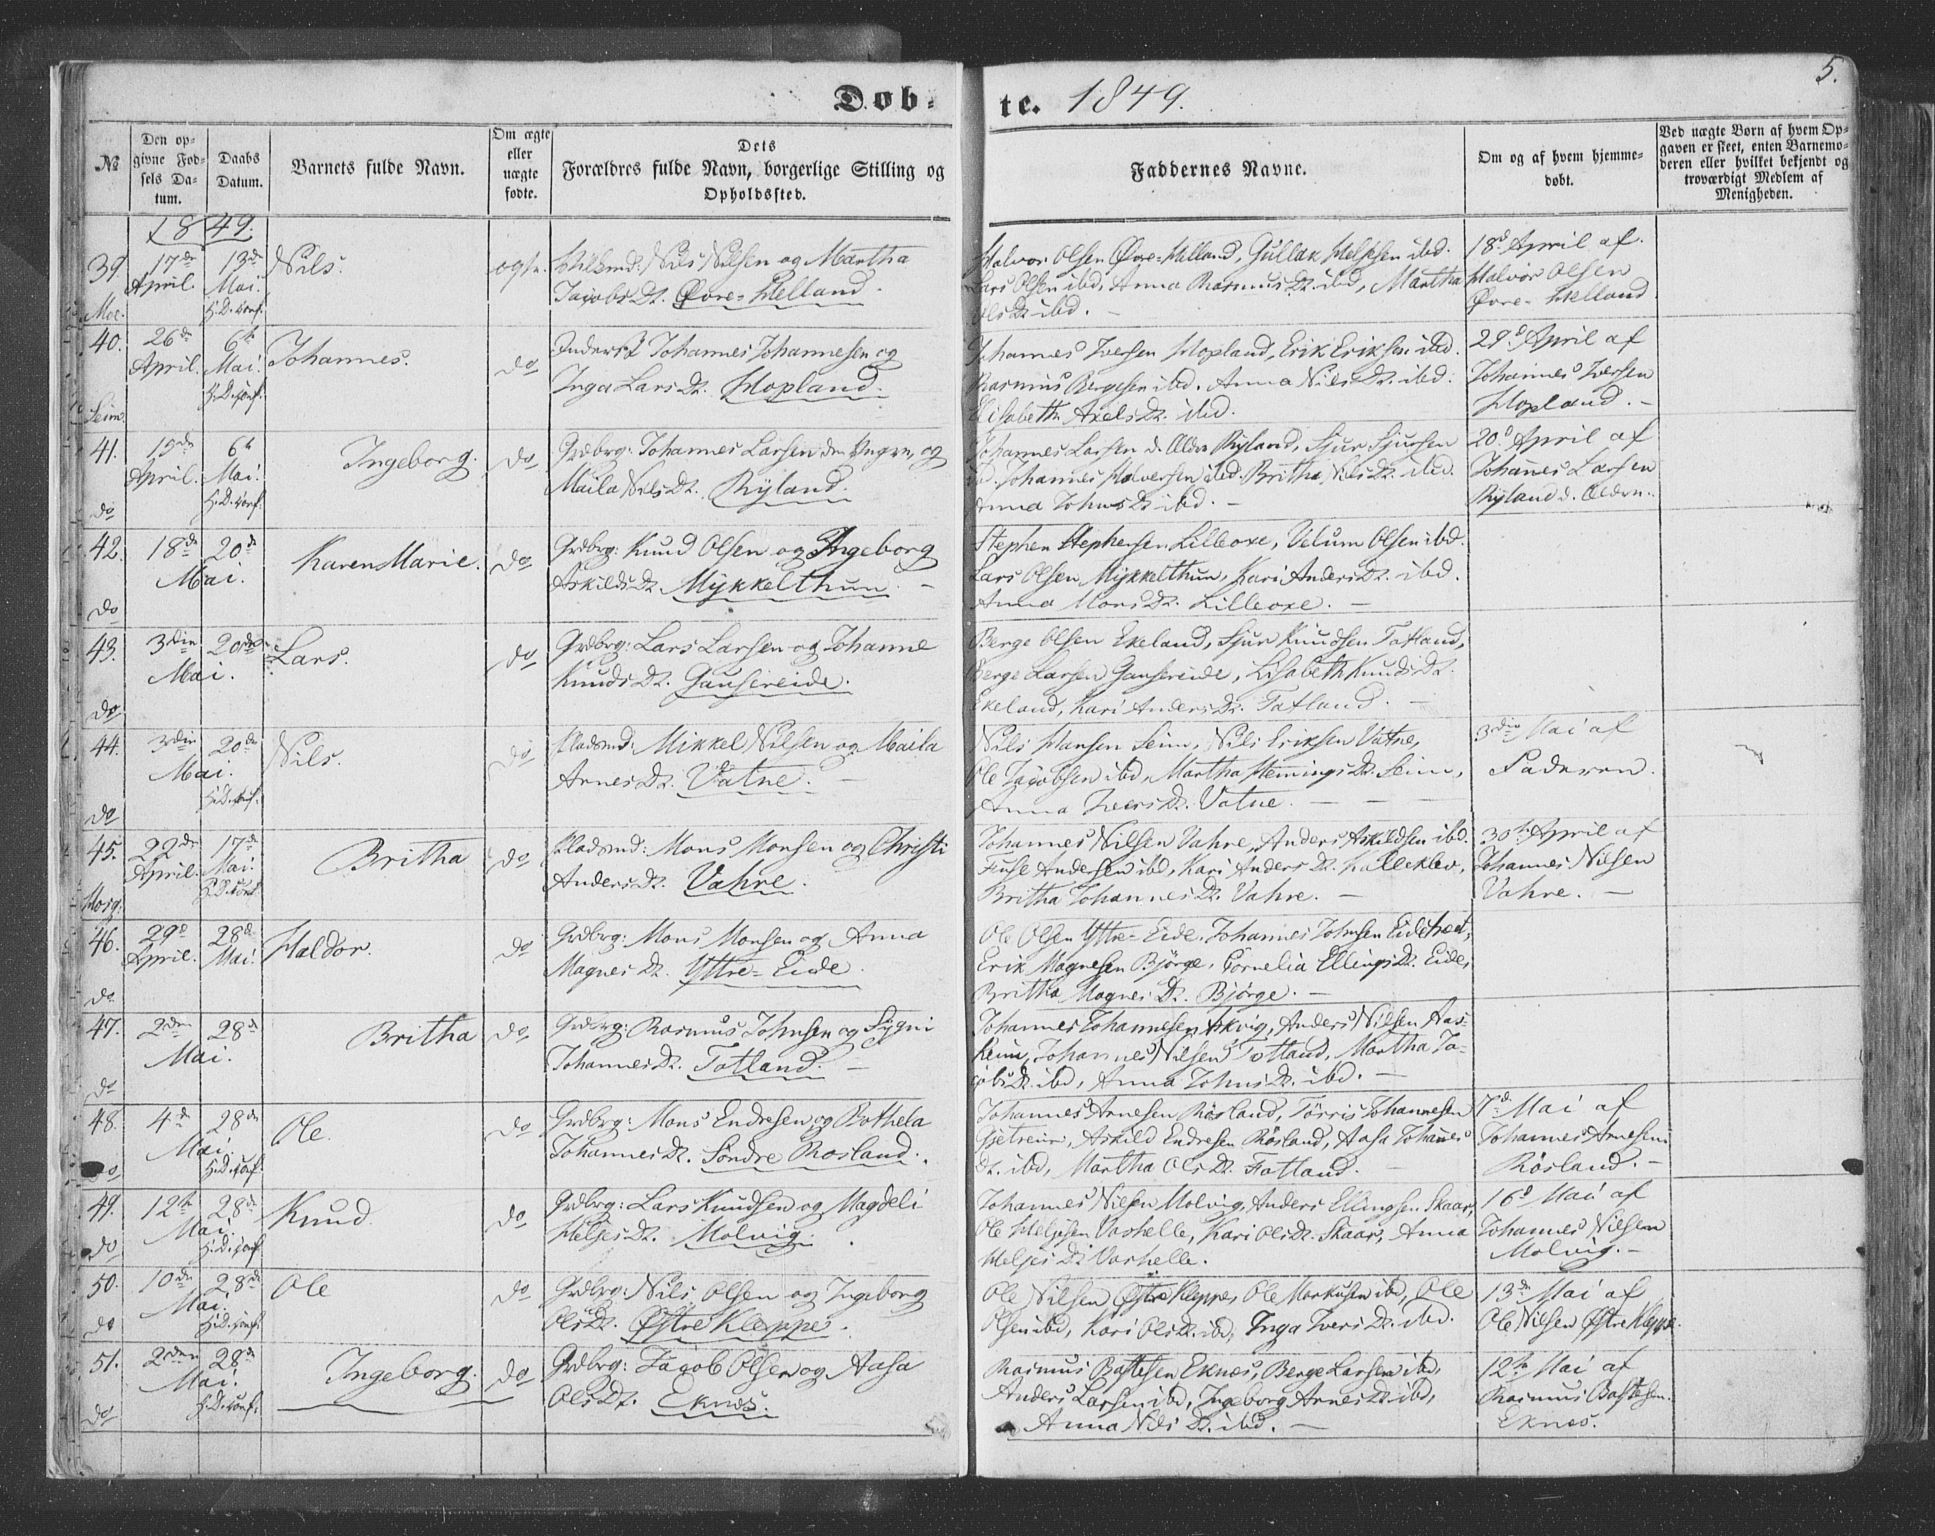 Døb-
te. 1849.
5.
No
Den op-
givne Fød-
sels Da-
tum.
Daabs
Datum.
Barnets fulde Navn.
Om ægte
eller
uægte
fødte.
Dets
Forældres fulde Navn, borgerlige Stilling og
Opholdssted.
Faddernes Navne.
Om og af hvem hjemme-
døbt.
Ved uægte Børn af hvem Op-
gaven er skeet, enten Barnemo-
deren eller hvilket bekjendt og
troværdigt Medlem af
Menigheden.
1849.
39. 17de April. 13de Mai. H.D. conf. Nils. ægte. Nils Nilsen og Martha
Jacobs Dt. Øvre-Helland.
Moe.
Halvor Olsen Øvre-Helland, Gullak Heljesen ibd.
Lars Olsen ibd, Anna Rasmus Dt. ibd, Martha
Ols Dt. ibd. -
18d April af
Halvor Olsen
Øvre-Helland
40. 26de April. 6te Mai. H.D. conf. Johannes. do Johannes Johannesen og
Inga Lars Dt. Hopland.
Seim.
Johannes Iversen Hopland, Erik Eriksen ibd.
Rasmus Bergesen ibd. Anna Nils Dt. ibd.
Elisabeth Axels Dt. ibd.
29d April af
Johannes Iversen
Hopland. -
41. April. 6te Mai. H.D. conf. Ingeborg. do Grdbrg: Johannes Larsen den Yngre, og
Maila Nils Dt. Ryland.
do
Johannes Larsen d. Ældre Ryland, Sjur Sjursen
ibd. Johannes Halversen ibd. Britha Nils Dt. ibd.
Anna Johns Dt. ibd. -
20d April af
Johannes Larsen
Ryland d. Ældre.
42. 18de 20de Mai. Karen Marie. do Grdbrg: Knud Olsen og Ingeborg
Askilds Dt. Mykkelthun. -
do
Stephen Stephensen Lilleoxe, Velum Olsen ibd.
Lars Olsen Mykkelthun, Kari Anders Dt. ibd.
Anna Mons Dt. Lilleoxe. -
43. 3die 20de Mai. Lars. do Grdbrg: Lars Larsen og Johanne
Knuds Dt. Gausereide.
do
Berge Olsen Ekeland, Sjur Knudsen Fatland,
Berge Larsen Gausereide, Lisabeth Knuds Dt.
Ekeland, Kari Anders Dt. Fatland. -
44. 3die 20de Mai. H.D. conf. Nils. do Pladsmd: Mikkel Nilsen og Maila
Arnes Dt. Vatne. -
do
Nils Hansen Seim, Nils Eriksen Vatne,
Ole Jacobsen ibd, Martha Flemings Dt. Seim,
Anna Ivers Dt. Vatne. -
3die Mai af
Faderen.
45. 22de April. 17de Mai. H.D. conf. Britha. do Pladsmd: Mons Monsen og Christi
Anders Dt. Vahre.
Hosg.
Johannes Nilsen Vahre, Anders Askildsen ibd.
Fuse Andersen ibd, Kari Anders Dt. Kalleklev,
Britha Johannes Dt. Vahre. -
30te April af
Johannes Nilsen
Vahre. -
46. 29d April. 28d Mai. Haldor. do Grdbrg: Mons Monsen og Anna
Magnes Dt. Yttre-Eide.
do
Ole Olsen Yttre-Eide, Johannes Johnsen Eidetræet,
Erik Magnesen Bjørge, Cornelia Ellings Dt. Eide,
Britha Magnes Dt. Bjørge. -
47. 2den 28d Mai. Britha do Grdbrg: Rasmus Johnsen og Sygni
Johannes Dt. Totland. -
do
Johannes Johannesen Askvig, Anders Nilsen Has-
heim, Johannes Nilsen Totland, Martha Ja-
cobs Dt. ibd, Anna Johns Dt. ibd. -
48. 4d 28de Mai. H.D. conf. Ole. do Grdbrg: Mons Endresen og Bothela
Johannes Dt. Søndre Røsland.
do
Johannes Arnesen Røsland, Tørris Johannesen
Gjetreim, Askild Endresen Røsland, Aasa Johannes
Dt. ibd, Martha Ols Dt. Fatland. -
7d Mai af
Johannes Arnesen
Røsland. -
49. 12te 28de Mai. H.D. conf. Knud. do Grdbrg: Lars Knudsen og Magdeli
Heljes Dt. Molvig.
do
Johannes Nilsen Molvig, Anders Ellingsen Skaar,
Ole Heljesen Varhelle, Kari Ols Dt. Skaar, Anna
Heljes Dt. Varhelle.
16d Mai af
Johannes Nilsen
Molvig. -
50. 10de 28de Mai. H.D. conf. Ole do Grdbrg: Nils Olsen og Ingeborg
Ols Dt. Østre Kleppe.
do
Ole Nilsen Østre Kleppe, Ole Markusen ibd, Ole
Olsen ibd, Kari Ols Dt. ibd, Inga Ivers Dt. ibd.
13de Mai af
Ole Nilsen Østre Kleppe.
51. 2den 28de Mai. H.D. conf. Ingeborg. do Grdbrg: Jacob Olsen og Aasa
Ols Dt. Eknes.
do
Rasmus Bastesen Eknes, Berge Larsen ibd,
Anders Larsen ibd, Ingeborg Arnes Dt. ibd,
Anna Nils Dt. ibd. -
12te Mai af
Rasmus Bastesen
Eknes.